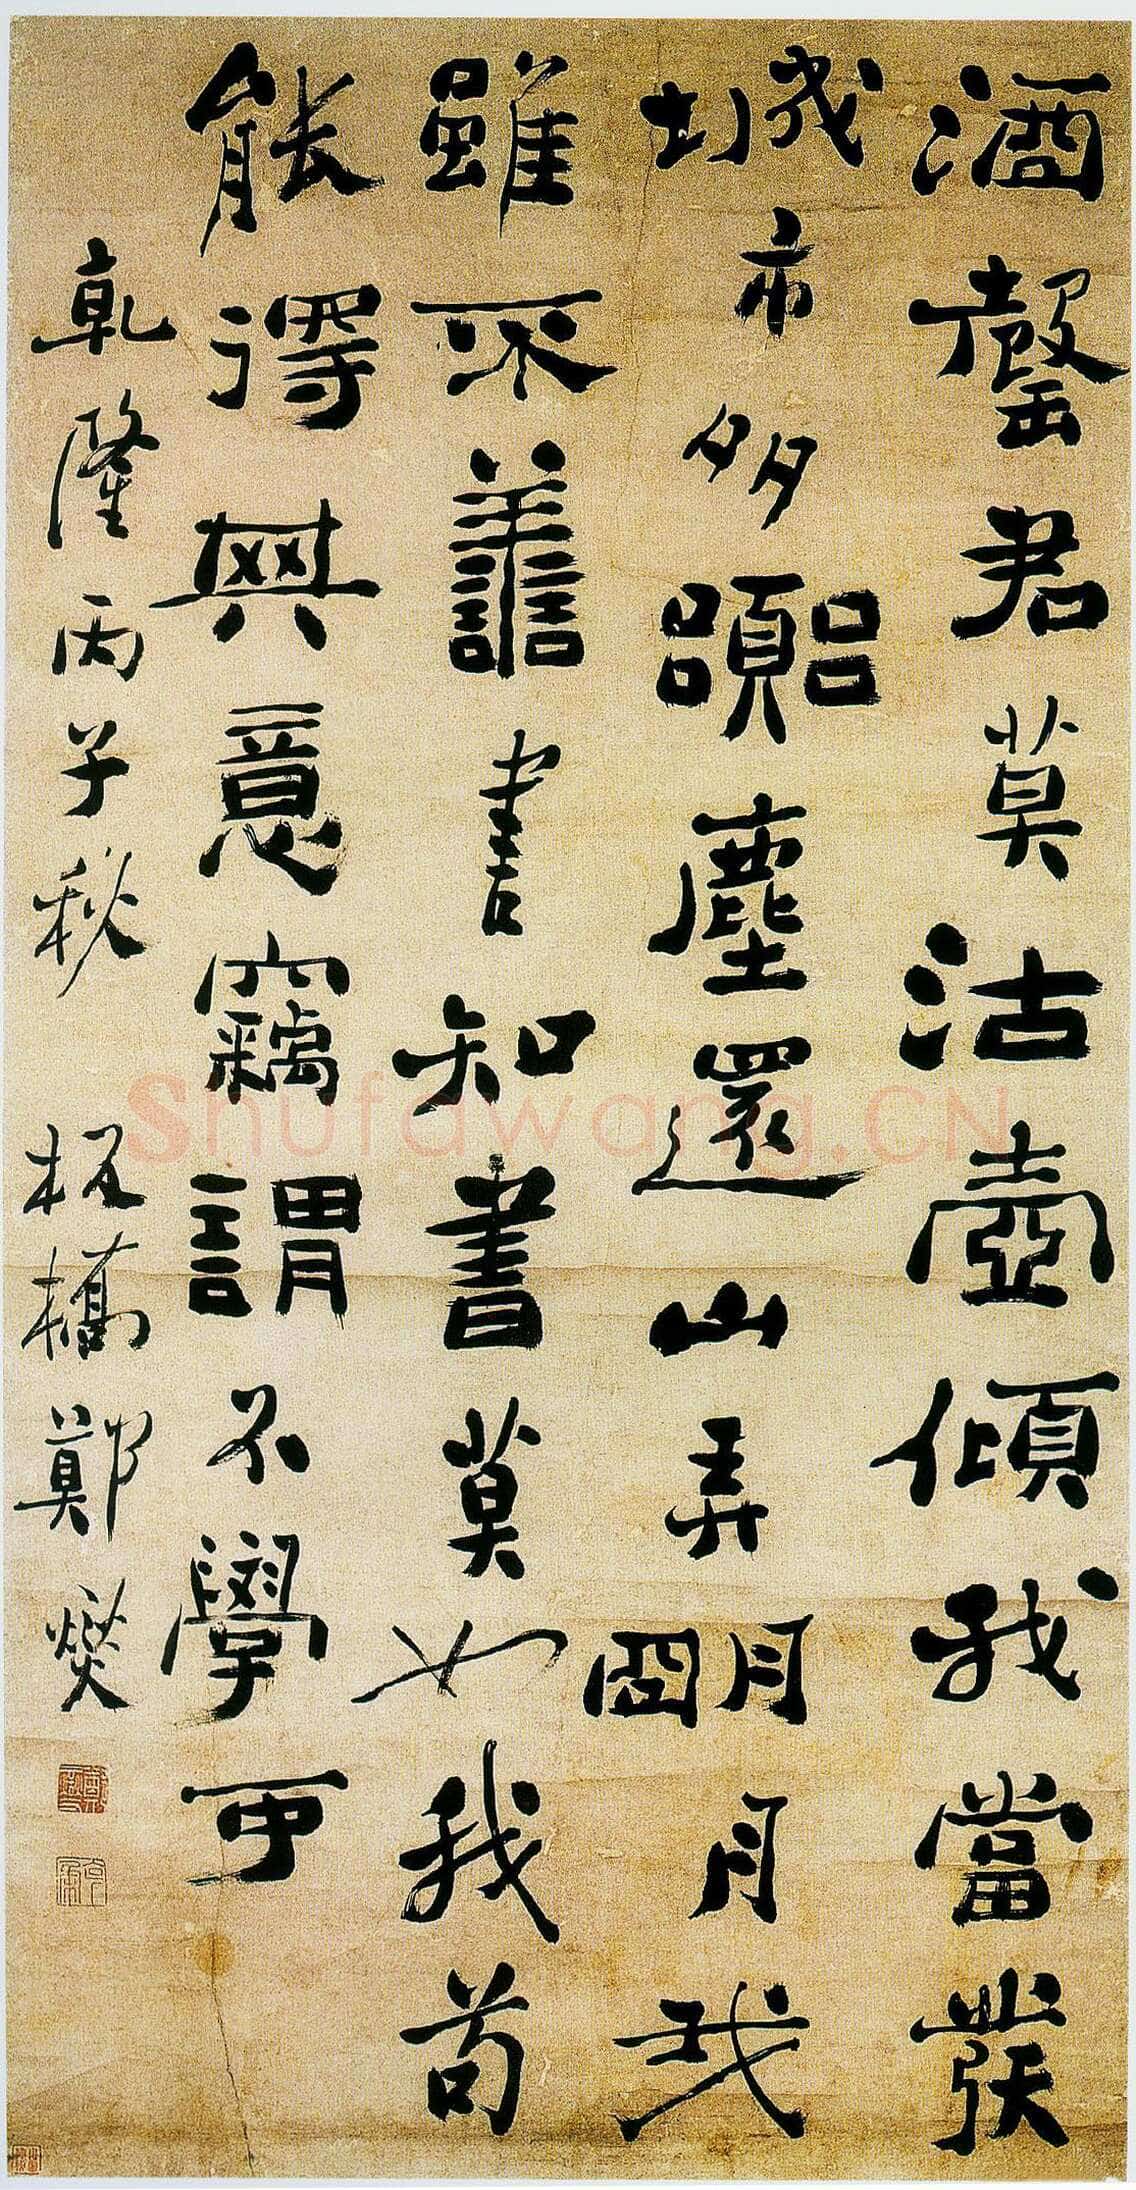 酒罄君莫沽壺傾我當發
城市多嚻塵還山弄明月我
雖不善書知書莫如我苟
能得其意竊謂不學可
乾隆丙子秋 板橋鄭燮
Shufawang.CN